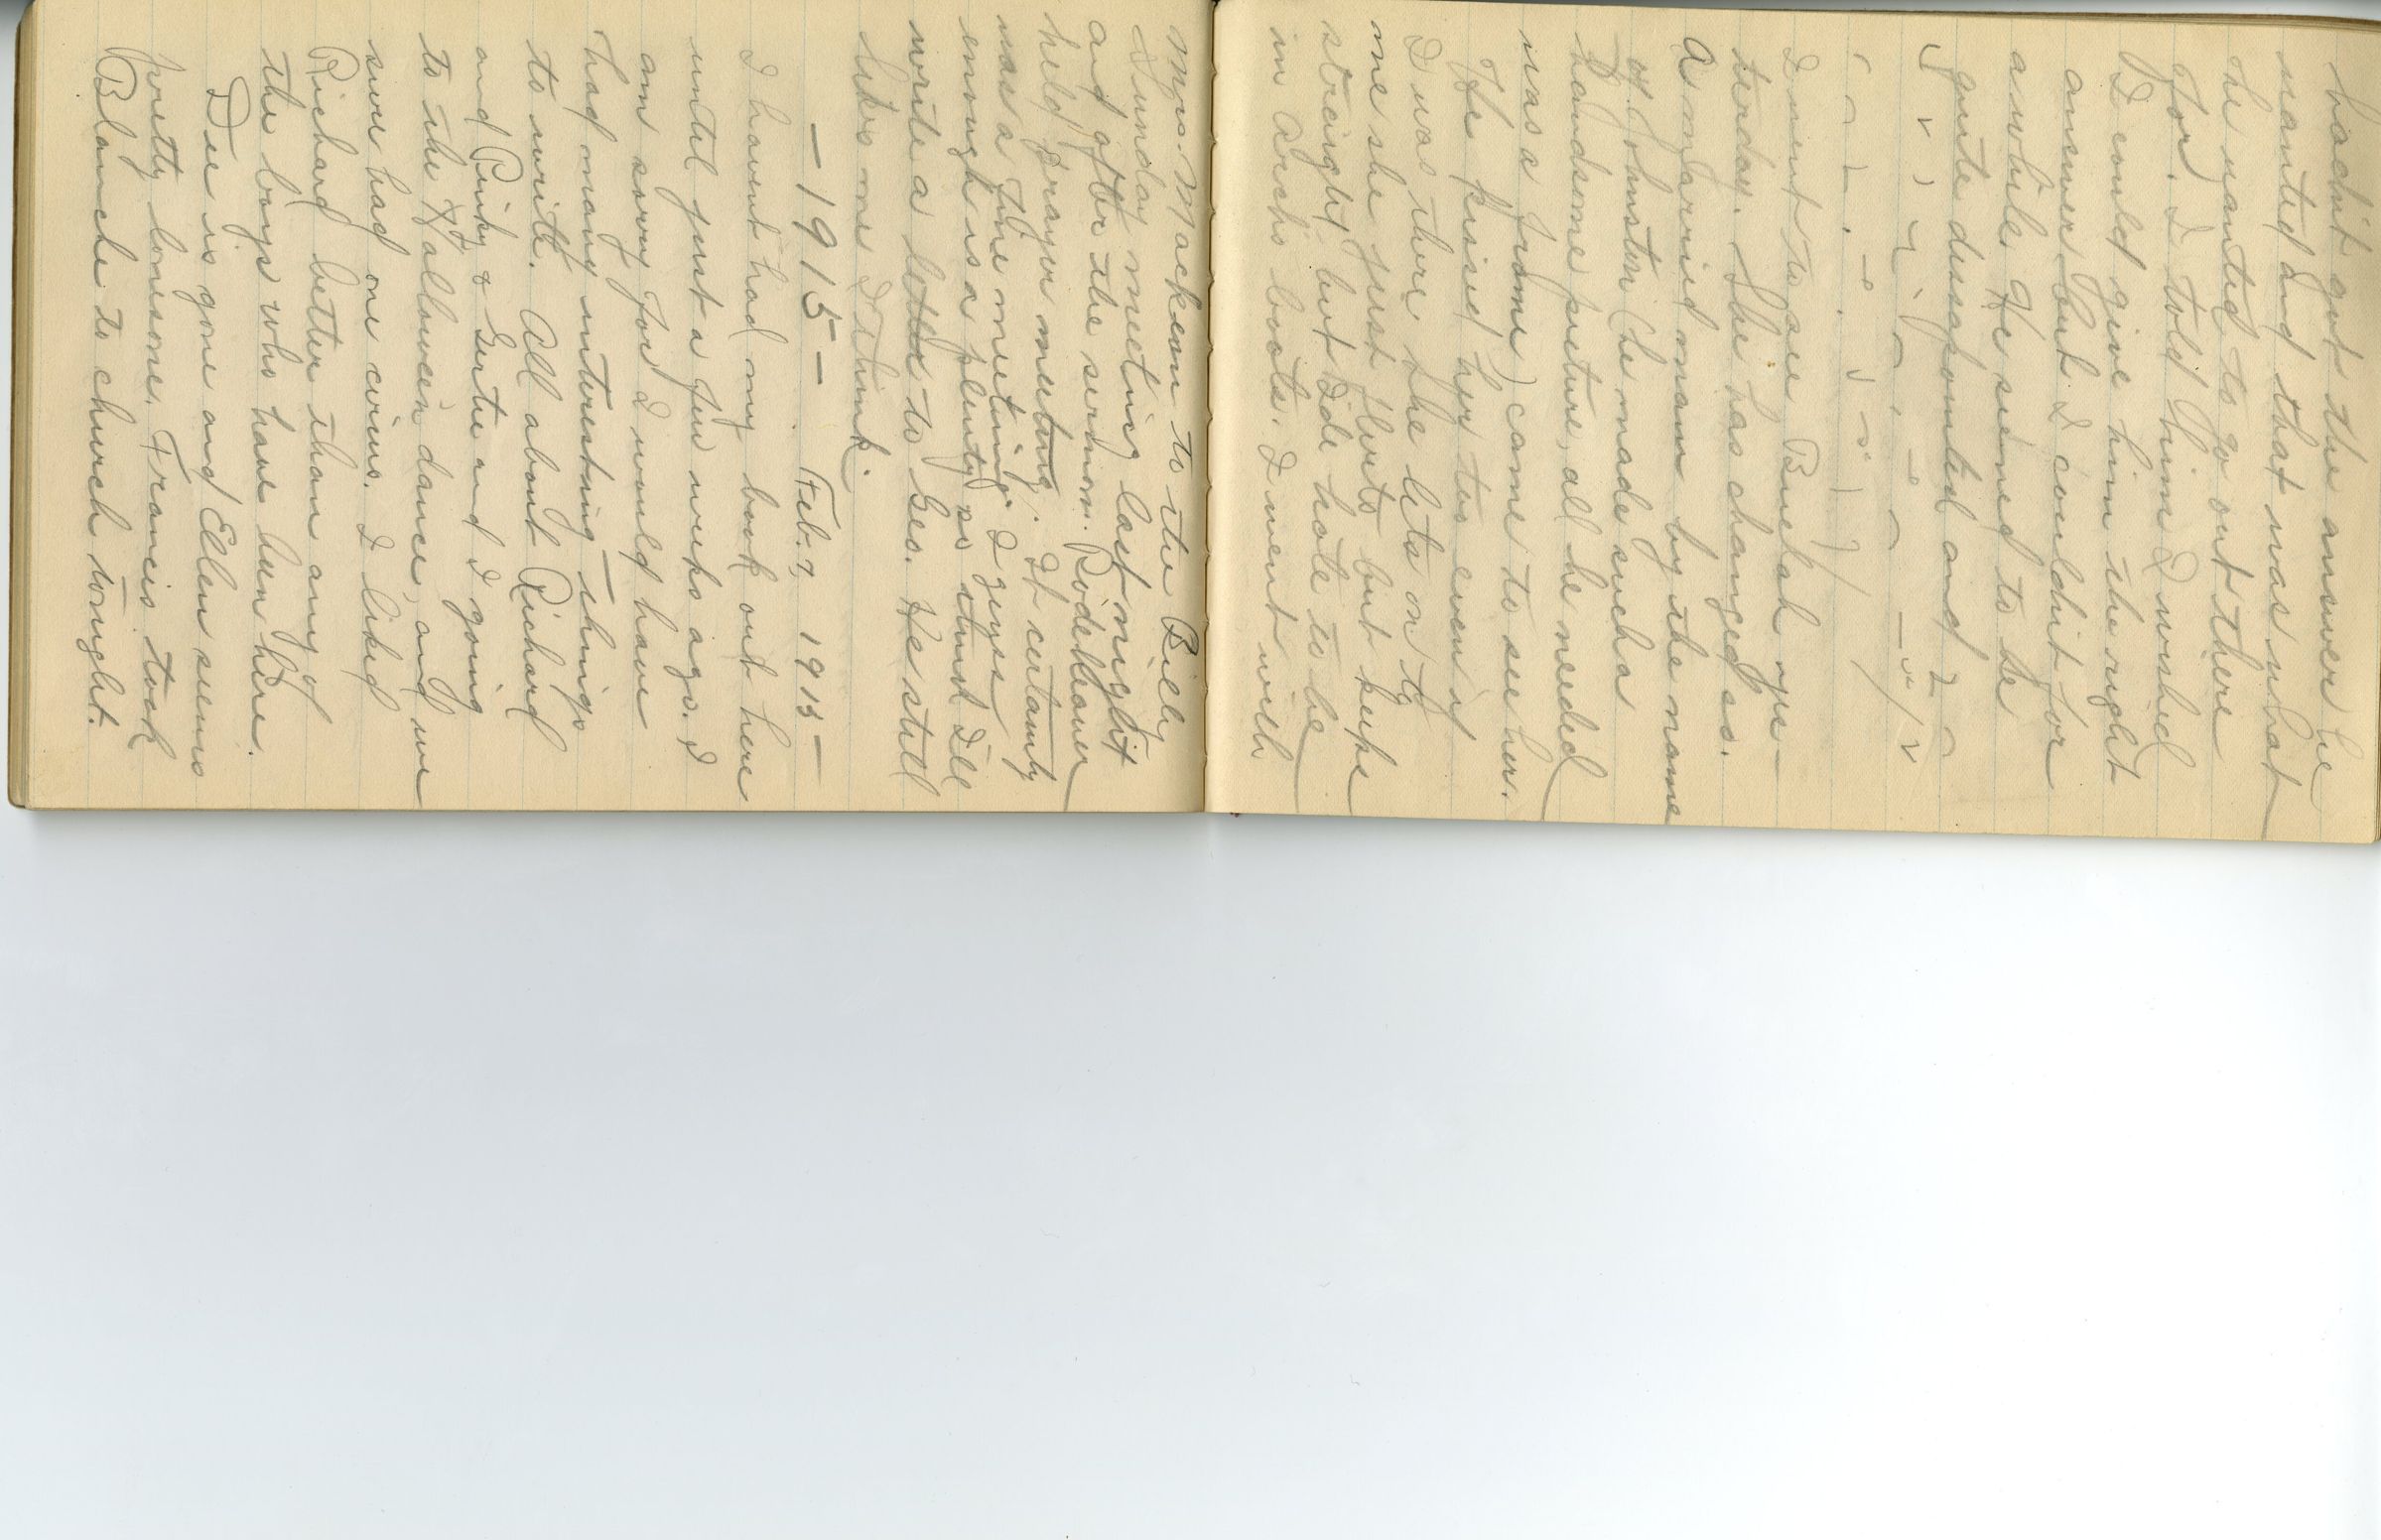 hadn't got the answer he
wanted and that was what
he wanted to go out there
for. I told him I wished
I could give him the right
answer but I couldn't for
awhile. He seemed to be
quite dissapointed and
I went to see Buelah yes-
terday. She has changed so.
A married man by the name
of Johnston (he made such a
handsome picture, all he needed
was a frame) came to see her.
He kissed her two even if
I was there. She lets on to
me she just flirts but keeps
streight, but I'de hate to be
in Arch's boots. I went with
Mrs. Mackeon to the Billy
Sunday meeting last night
and after the sermon. Rodeheaver
held prayer meeting. It certainly
was a fine meeting. I guess
enough is a plenty so think I'll
write a letter to Geo. He still
likes me I think.
— 1915 — Feb. 7, 1915 —
I havent had my book out here
until just a few weeks ago. I
am sorry for I would have
had many interesting things
to write. All about Richard
and Pinky & Gertie and I going
to the Hallowe'en dance, and we
sure had one circus. I liked
Richard better than any of
the boys who have been here.
Dee is gone and Ellen seems
pretty lonesome. Francis took
Blanche to church tonight.